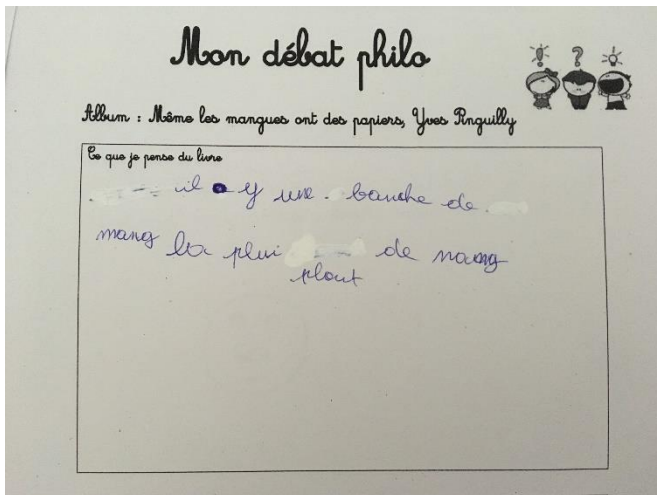 Mon débat philo
! ? !
Album : Même les mangues ont des papiers, Yves Pinguilly
Ce que je pense du livre
il y une banche de
mang la plui de mang
plout